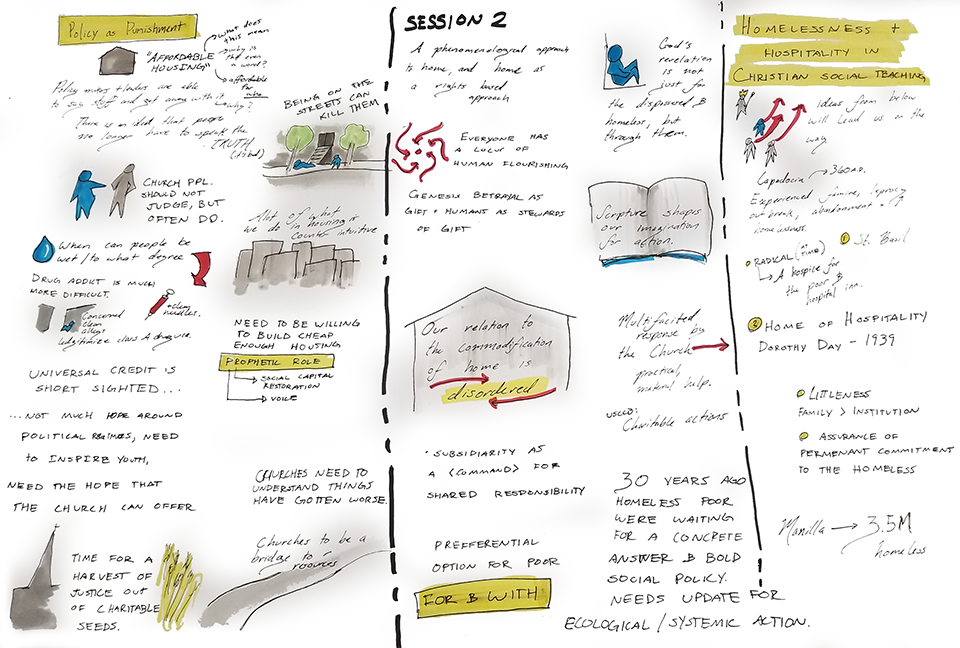 Policy as Punishment
"AFFORDABLE
HOUSING"
what does
this mean
why is
this even
a word?
affordable
for
who
why?
Policy makers + leaders are able
to say stuff and get away with it
There is an idea that people
no longer have to speak the
TRUTH
(it's bad)
BEING ON THE
STREETS CAN
KILL THEM
CHURCH PPL.
SHOULD NOT
JUDGE, BUT
OFTEN DO.
Alot of what
we do in housing is
counter intuitive
When can people be
wet / to what degree
DRUG ADDICT IS MUCH
MORE DIFFICULT.
Concerned
clean
allegs
+clean
needles.
legitimize class A drug use.
NEED TO BE WILLING
TO BUILD CHEAP
ENOUGH HOUSING
PROPHETIC ROLE
SOCIAL CAPITAL
RESTORATION
VOICE
UNIVERSAL CREDIT IS
SHORT SIGHTED...
...NOT MUCH HOPE AROUND
POLITICAL REGIMES, NEED
to INSPIRE YOUTH,
NEED THE HOPE THAT
THE CHURCH CAN OFFER
CHURCHES NEED TO
UNDERSTAND THINGS
HAVE GOTTEN WORSE.
TIME FOR A
HARVEST OF
JUSTICE OUT
OF CHARITABLE
SEEDS.
Churches to be a
bridge to
resources
SESSION 2
A phenomenological approach
to home, and home as
a rights based
approach
EVERYONE HAS
A LOCUS OF
HUMAN FLOURISHING
GENESIS BETRAYAL AS
GIFT + HUMANS AS STEWARDS
OF GIFT
Our relation to
the commodification
of home is
disordered
· SUBSIDIARITY AS
A <COMMAND> FOR
SHARED RESPONSIBILITY
PREFFERENTIAL
OPTION FOR POOR
FOR & WITH
God's
revelation
is not
just for
the dispossessed &
homeless, but
through them.
Scripture shapes
our imagination
for action.
Multifacited
response by
the Church
practical,
material help.
USCCB:
Charitable actions
30 YEARS AGO
HOMELESS POOR
WERE WAITING
FOR A CONCRETE
ANSWER & BOLD
SOCIAL POLICY.
NEEDS UPDATE FOR
ECOLOGICAL / SYSTEMIC ACTION.
HOMELESSNESS +
HOSPITALITY IN
CHRISTIAN SOCIAL TEACHING
Ideas from below
will lead us on the
way
Capadocia → 360AD.
Experienced famine, leprosy
outbreak, abandonment +
homelessness.
① St. Basil
RADICAL (@ TIME)
A hospice for
the poor &
hospital inn.
② HOME OF HOSPITALITY
DOROTHY DAY - 1939
LITTLENESS
FAMILY > INSTITUTION
ASSURANCE OF
PERMENANT COMMITMENT
TO THE HOMELESS
Manilla → 3.5M
homeless